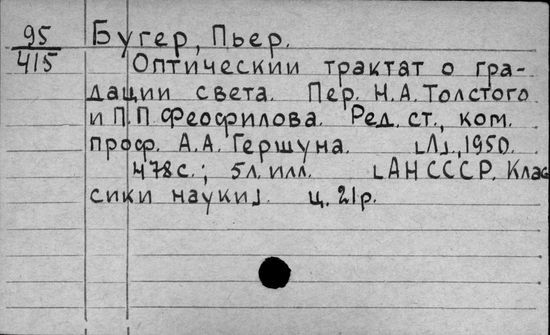 95 Бугер, Пьер.
415 Оптический трактат о гра-
дации света. Пер. Н.А.Толстого
и П.П.Феофилова. Ред., ст., ком.
проф. А.А. Гершуна. [Л], 1950.
478с.; 5л. илл. [АН СССР. Клас
сики науки]. ц. 21р.